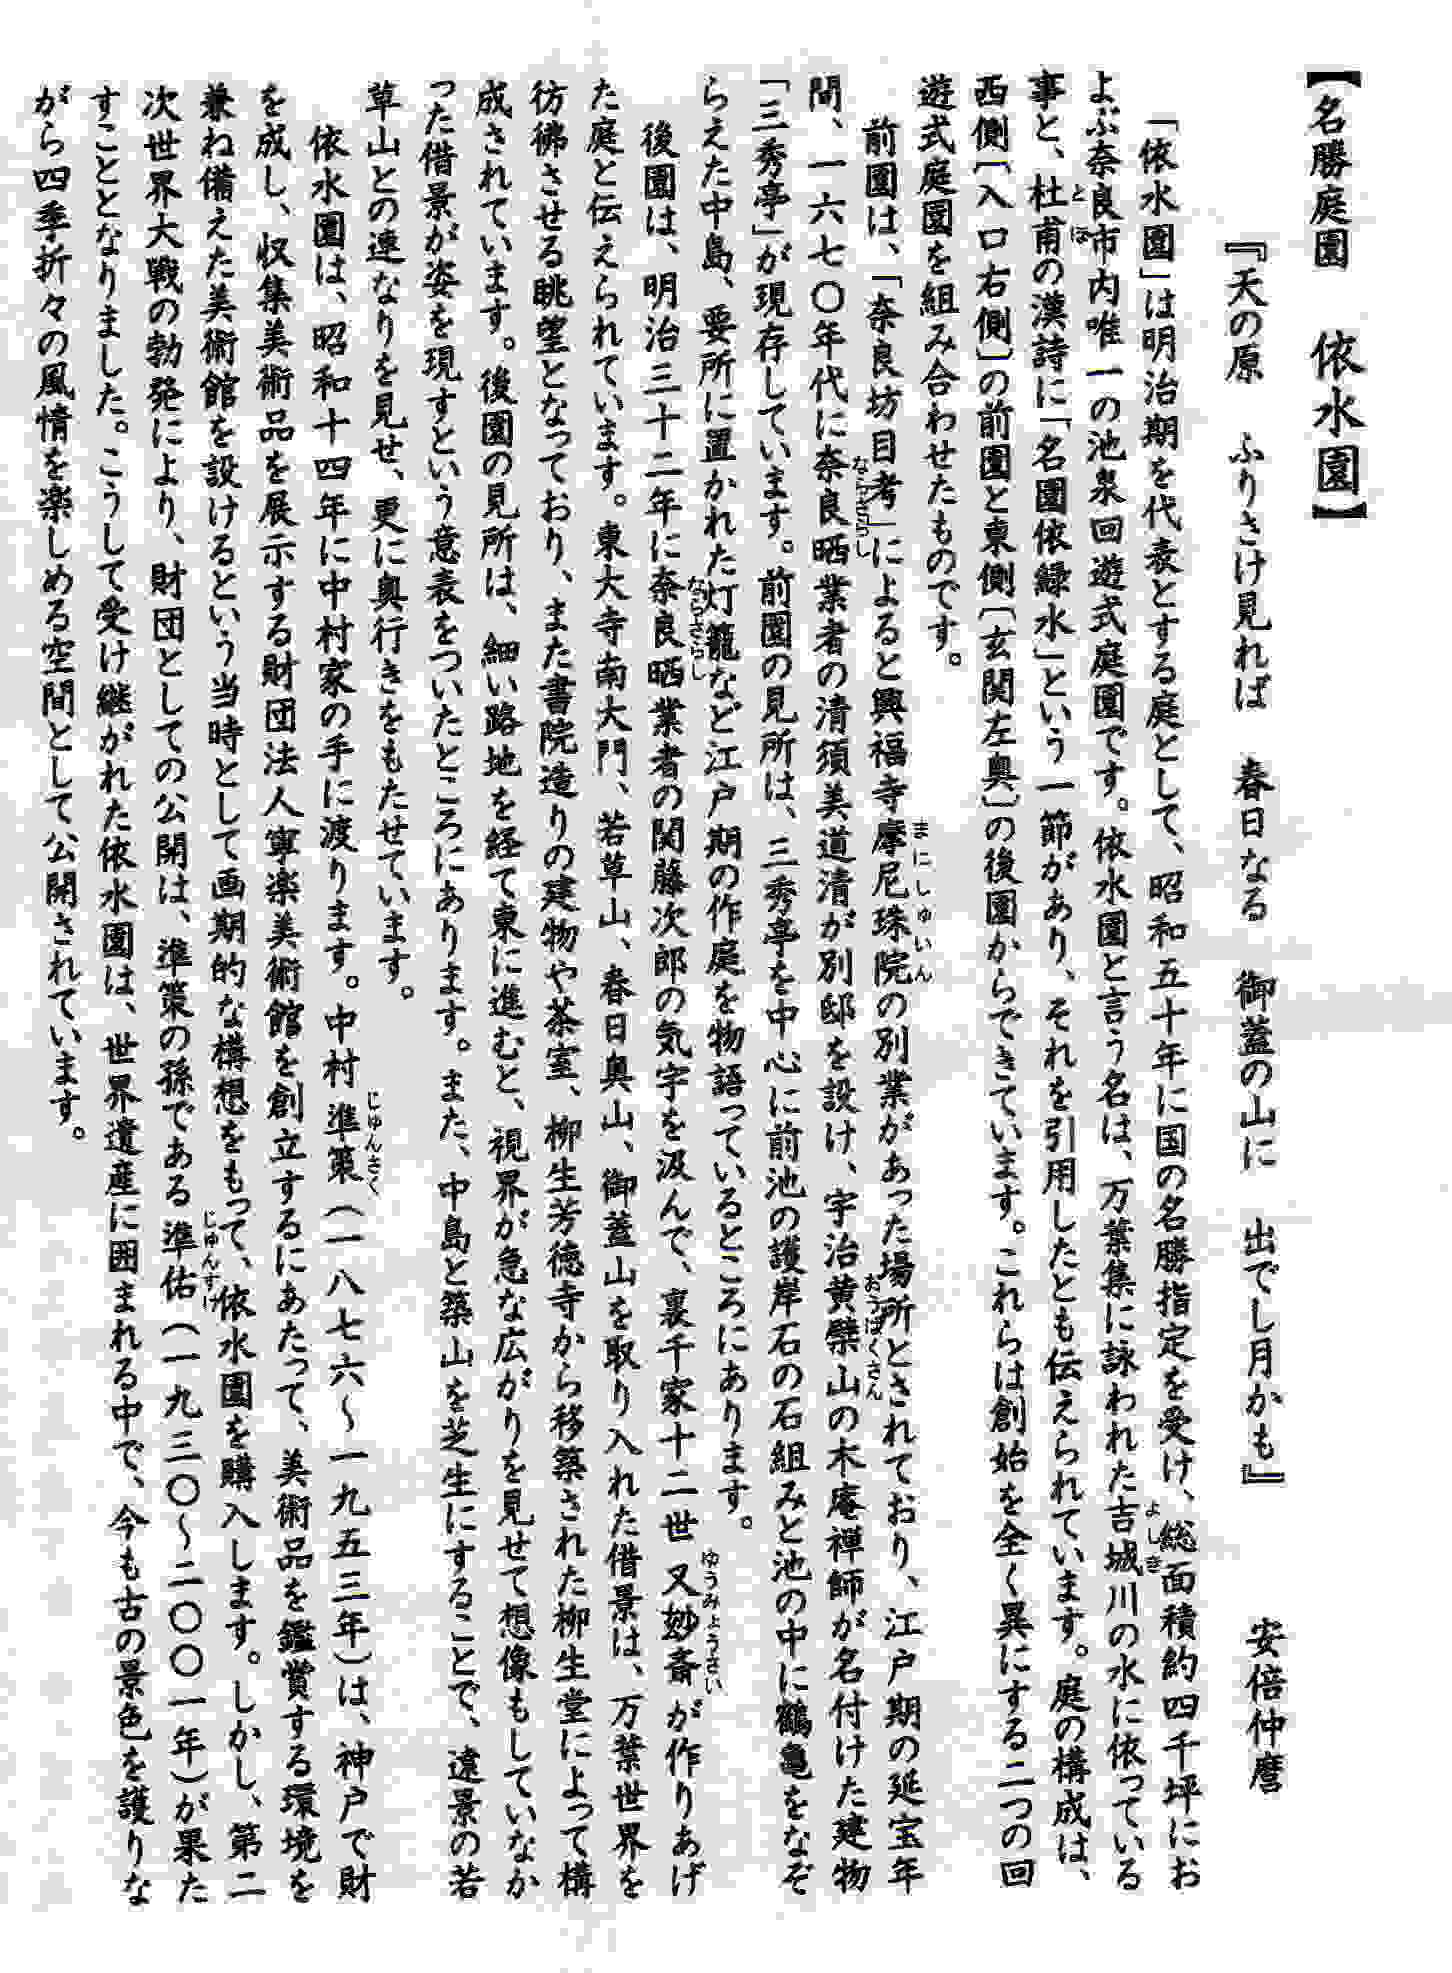 【名勝庭園　依水園】
『天の原　ふりさけ見れば　春日なる　御蓋の山に　出でし月かも』　安倍仲麿
「依水園」は明治期を代表とする庭として、昭和五十年に国の名勝指定を受け、総面積約四千坪にお
よぶ奈良市内唯一の池泉回遊式庭園です。依水園と言う名は、万葉集に詠われた吉城川の水に依っている
事と、杜甫の漢詩に「名園依緑水」という一節があり、それを引用したとも伝えられています。庭の構成は、
西側〔入口右側〕の前園と東側〔玄関左奥〕の後園からできています。これらは創始を全く異にする二つの回
遊式庭園を組み合わせたものです。
前園は、「奈良坊目考」によると興福寺摩尼珠院の別業があった場所とされており、江戸期の延宝年
間、一六七〇年代に奈良晒業者の清須美道清が別邸を設け、宇治黄檗山の木庵禅師が名付けた建物
「三秀亭」が現存しています。前園の見所は、三秀亭を中心に前池の護岸石の石組みと池の中に鶴亀をなぞ
らえた中島、要所に置かれた灯籠など江戸期の作庭を物語っているところにあります。
後園は、明治三十二年に奈良晒業者の関藤次郎の気宇を汲んで、裏千家十二世 又玅斎が作りあげ
た庭と伝えられています。東大寺南大門、若草山、春日奥山、御蓋山を取り入れた借景は、万葉世界を
彷彿させる眺望となっており、また書院造りの建物や茶室、柳生芳徳寺から移築された柳生堂によって構
成されています。後園の見所は、細い路地を経て東に進むと、視界が急な広がりを見せて想像もしていなか
った借景が姿を現すという意表をついたところにあります。また、中島と築山を芝生にすることで、遠景の若
草山との連なりを見せ、更に奥行きをもたせています。
依水園は、昭和十四年に中村家の手に渡ります。中村 準策（一八七六〜一九五三年）は、神戸で財
を成し、収集美術品を展示する財団法人寧楽美術館を創立するにあたって、美術品を鑑賞する環境を
兼ね備えた美術館を設けるという当時として画期的な構想をもって、依水園を購入します。しかし、第二
次世界大戦の勃発により、財団としての公開は、準策の孫である 準佑（一九三〇〜二〇〇一年）が果た
すこととなりました。こうして受け継がれた依水園は、世界遺産に囲まれる中で、今も古の景色を護りな
がら四季折々の風情を楽しめる空間として公開されています。
とほ
よしき
まにしゅいん
ならさらし
おうばくさん
ならさらし
ゆうみょうさい
じゅんさく
じゅんすけ